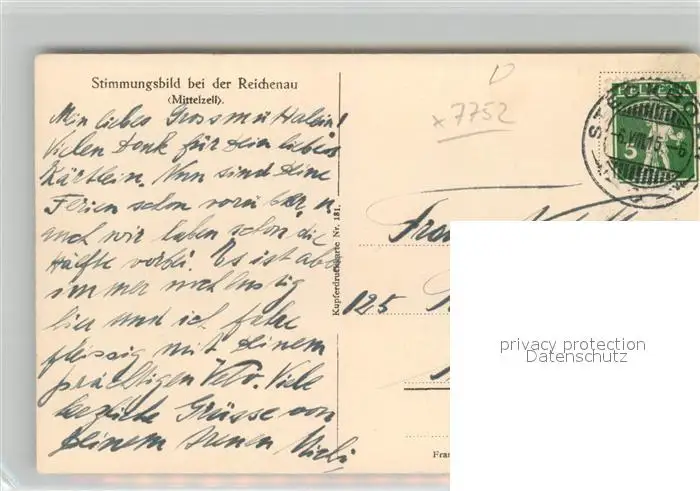 Stimmungsbild bei der Reichenau
(Mittelzell).
Mein liebes Grossmütterlein!
Vielen Dank für Dein liebes
Kärtlein. Nun sind Deine
Ferien schon vorüber u.
auch wir haben schon die
Hälfte vorbei. Es ist aber
immer noch lustig
hier und ich fahre
fleissig mit Deinem
prächtigen Velo. Viele
herzliche Grüsse von
Deinem treuen
Kupferdruckkarte Nr. 181.
x 7752
6.VIII.15.-6
5
125
privacy protection
Datenschutz
Fra